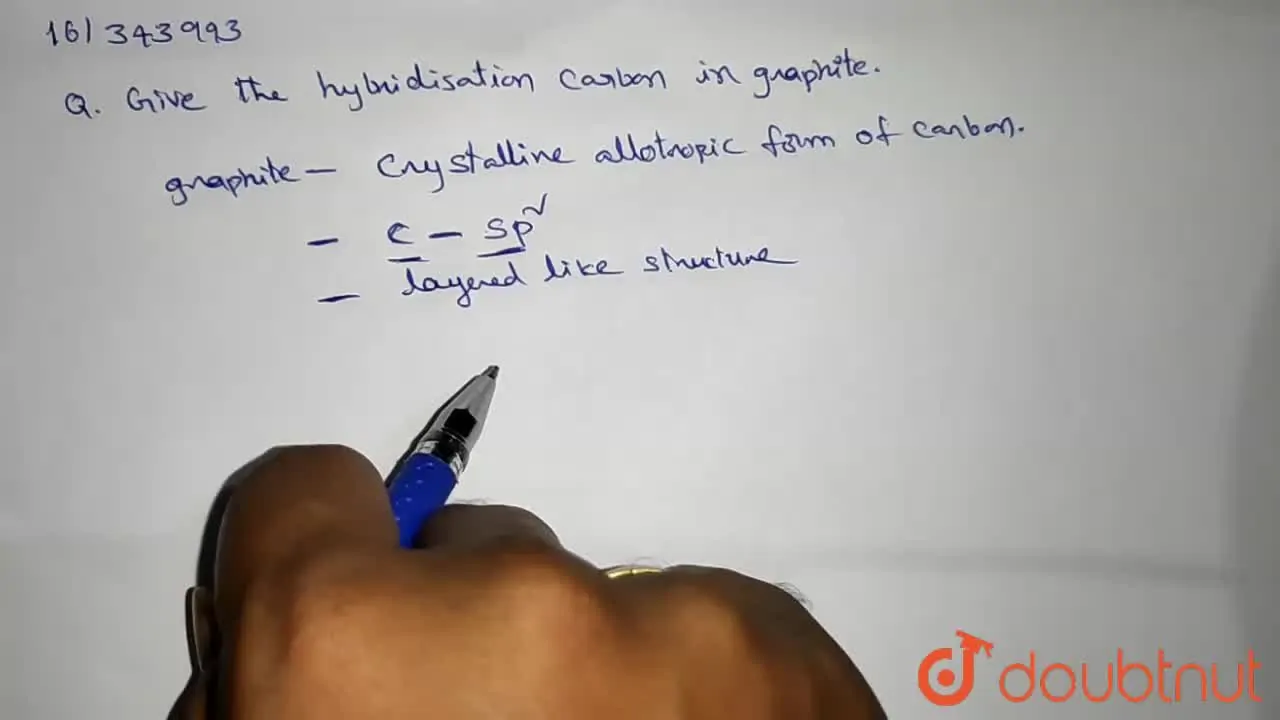 16) 343993
Q. Give the hybridisation carbon in graphite.
graphite — Crystalline allotropic form of carbon.
— C — sp²
— layered like structure
doubtnut